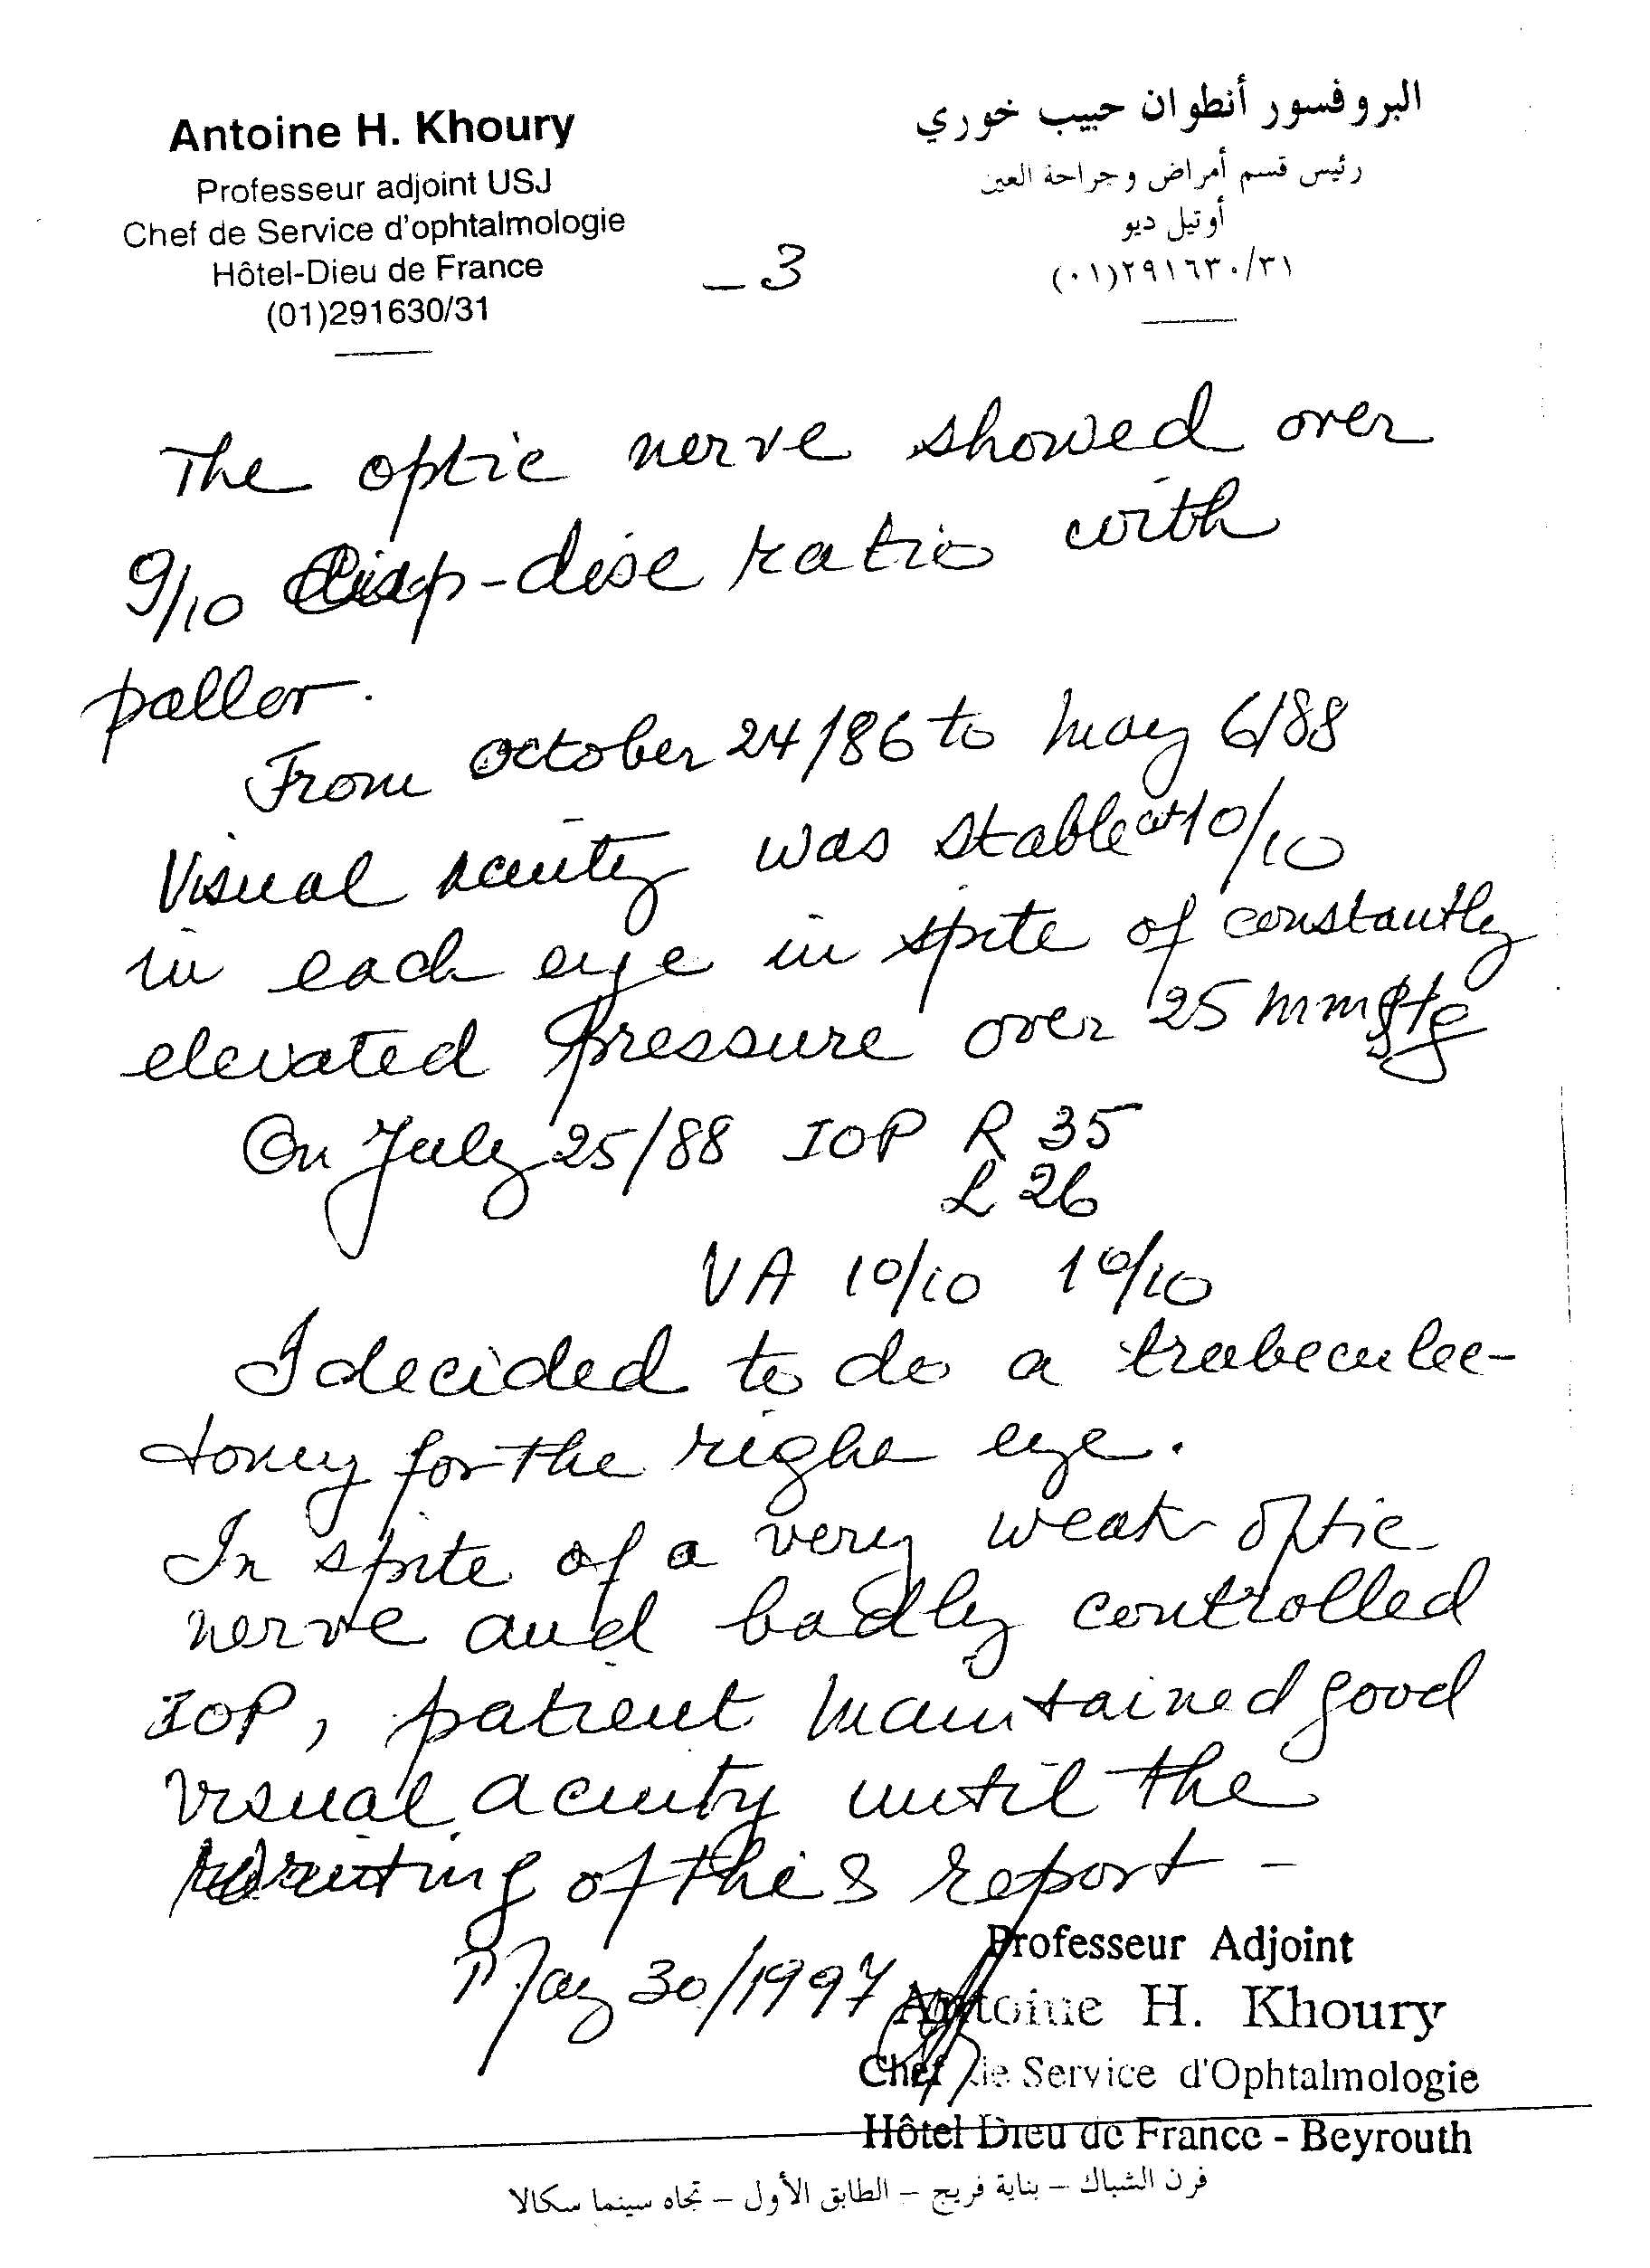 Antoine H. Khoury
Professeur adjoint USJ
Chef de Service d'ophtalmologie
Hôtel-Dieu de France
(01)291630/31
البروفسور أنطوان حبيب خوري
رئيس قسم أمراض وجراحة العين
أوتيل ديو
(٠١)٢٩١٦٣٠/٣١
- 3
The optic nerve showed over
9/10 Cup-disc ratio with
pallor.
From october 24/86 to may 6/88
Visual acuity was stable at 10/10
in each eye in spite of constantly
elevated pressure over 25 mmHg
On July 25/88 IOP R 35
L 26
VA 10/10 10/10
I decided to do a trabeculec-
tomy for the right eye.
In spite of a very weak optic
nerve and badly controlled
IOP, patient maintained good
visual acuity until the
writing of this report -
May 30/1997
Professeur Adjoint
Antoine H. Khoury
Chef de Service d'Ophtalmologie
Hôtel Dieu de France - Beyrouth
فرن الشباك – بناية فريج – الطابق الأول – تجاه سينما سكالا